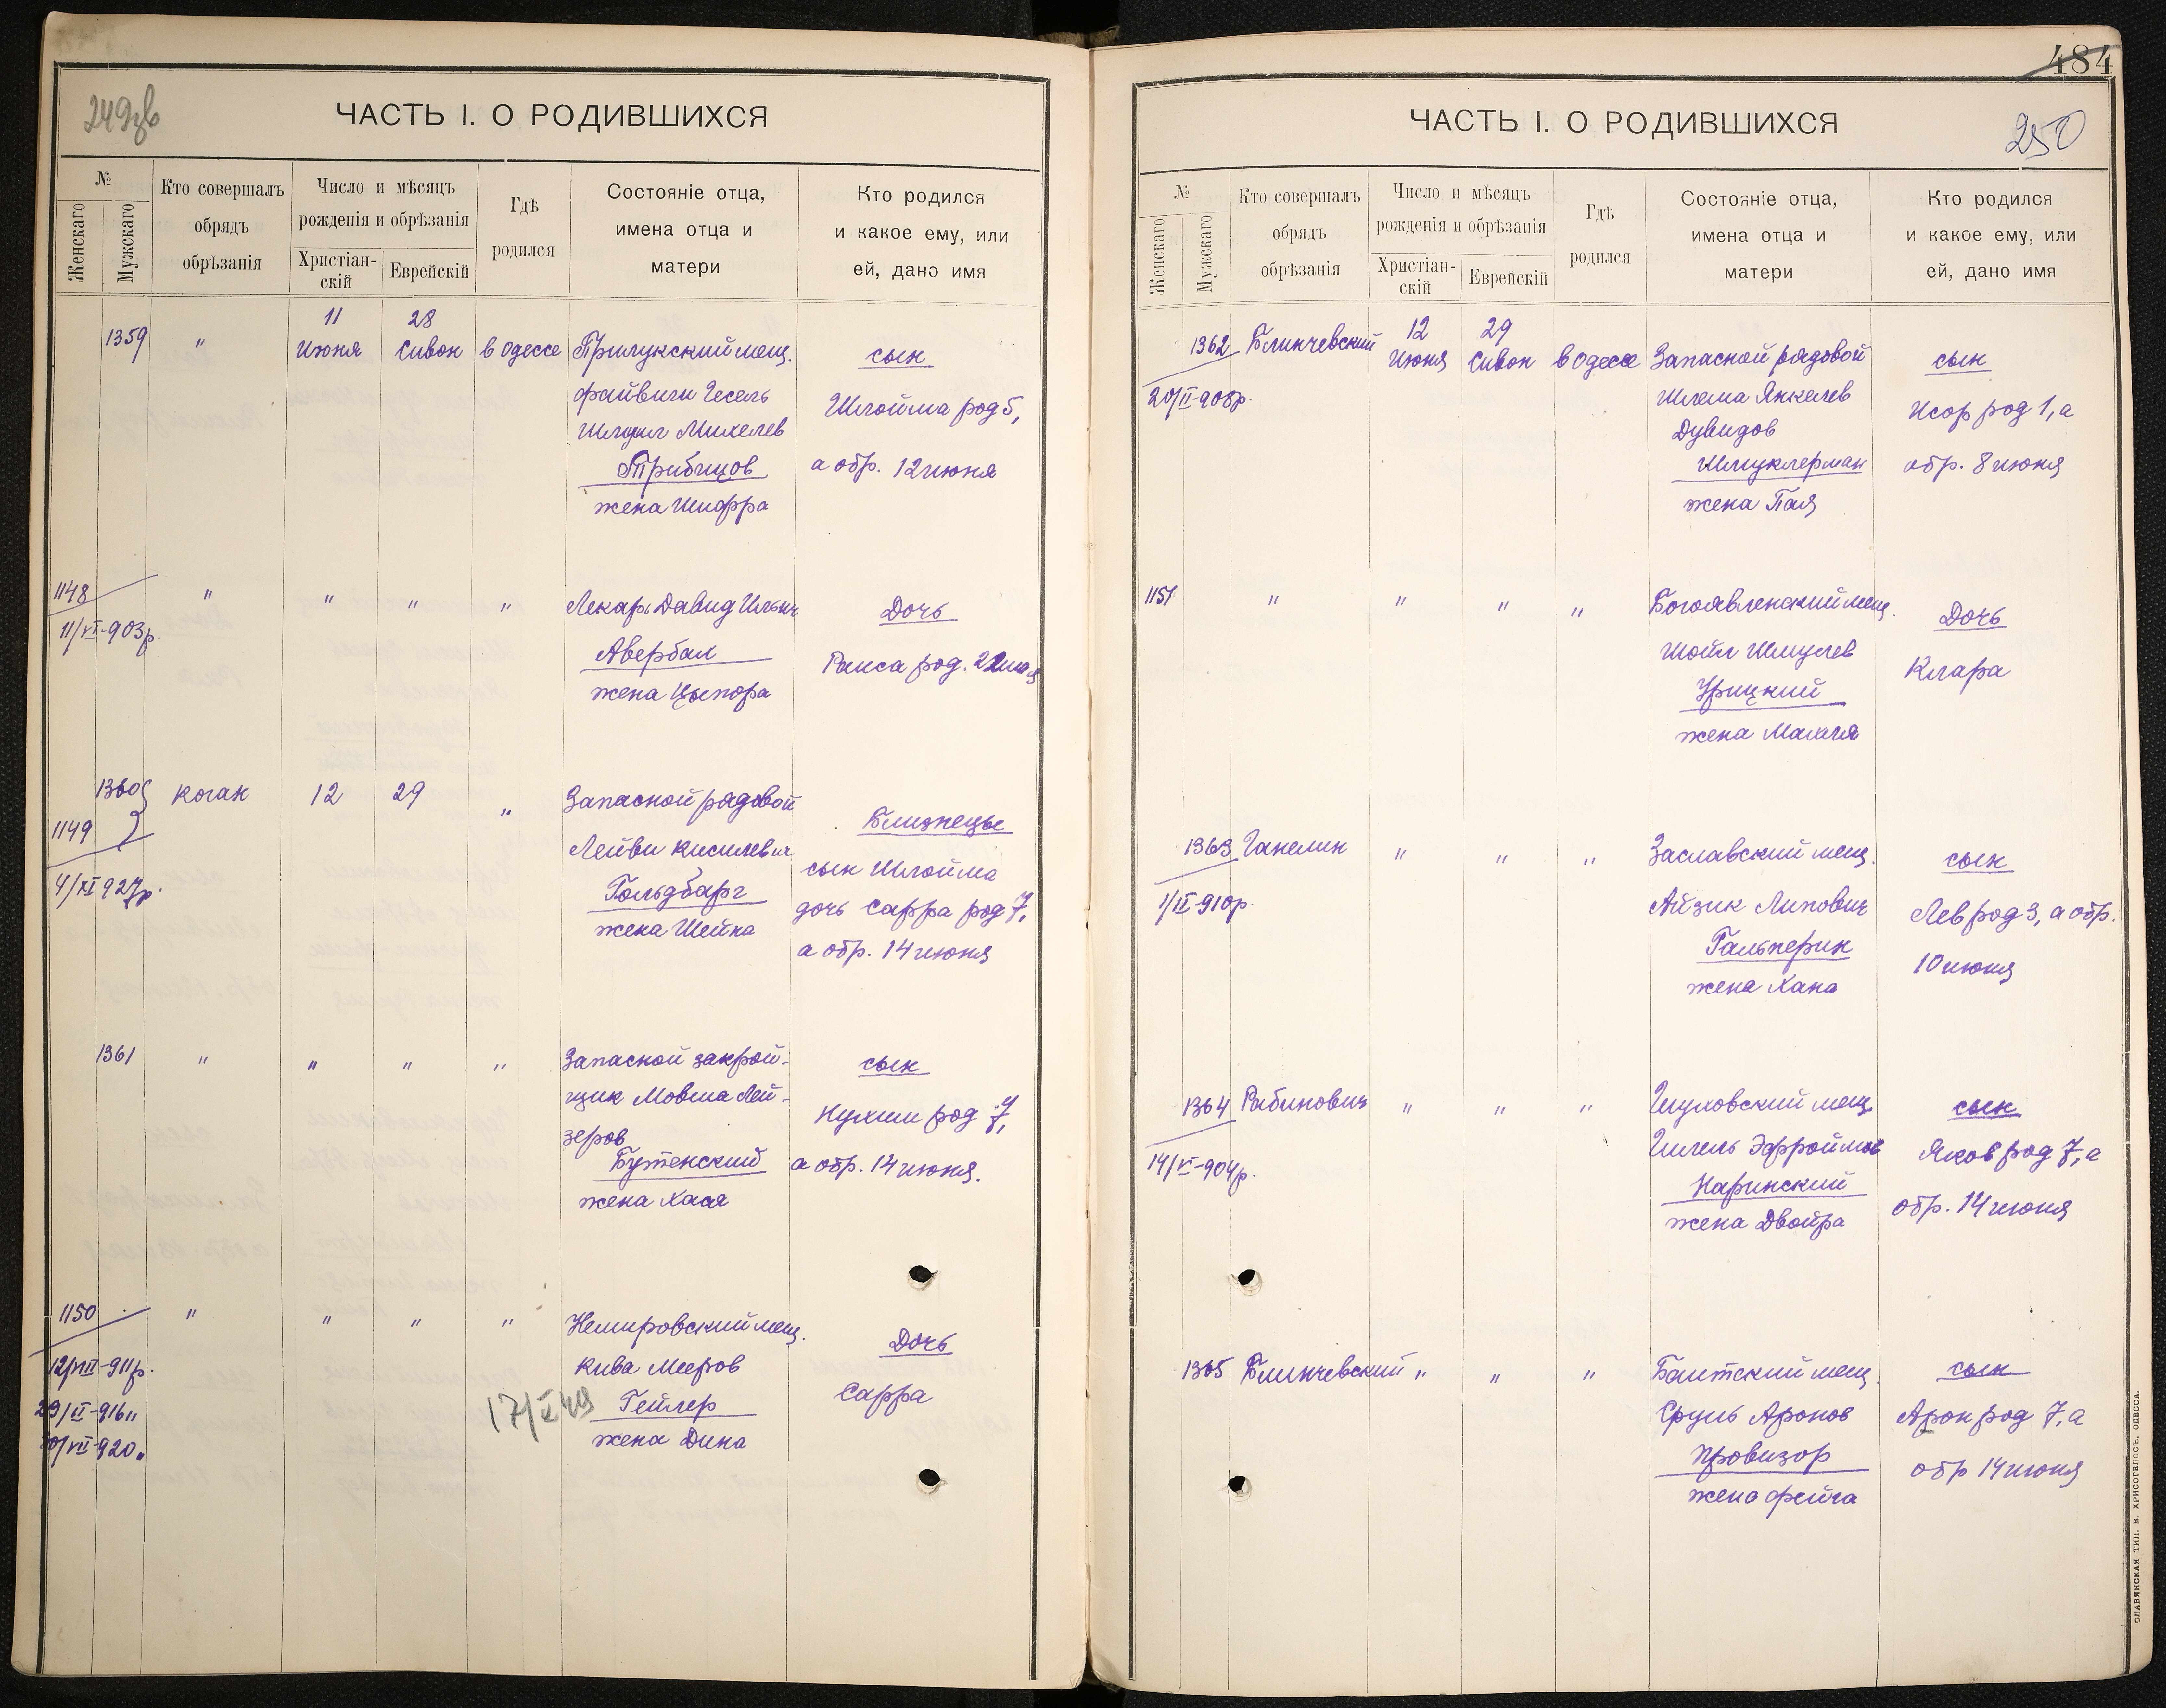 249зв
ЧАСТЬ I. О РОДИВШИХСЯ
№
Женскаго
Мужскаго
Кто совершалъ
обрядъ
обрѣзанія
Число и мѣсяцъ
рожденія и обрѣзанія
Христіан-
скій
Еврейскій
Гдѣ
родился
Состояніе отца,
имена отца и
матери
Кто родился
и какое ему, или
ей, дано имя
1359 " 11 Июня 28 Сивон в Одессе Прилукский мещ.
Файвиш Гесель
Михелев
Трибицов
жена Шифра
сын
Шлойма род 5,
а обр. 12 июня
1148 " " " " Лекарь Давид Ильич
11/VI-903р.
Авербах
жена Ципора
Дочь
Раиса род. 22 мая
1360 Коган 12 29 " Запасной рядовой
1149
4/XI 927р.
Лейви Кисилевич
Гольдбарг
жена Шейна
Близнецы
сын Шлойма
дочь Сарра род 7,
а обр. 14 июня
1361 " " " " Запасной закрой-
щик Мовша Лей-
зеров
Бутенский
жена Хася
сын
Нухим род 7,
а обр. 14 июня.
1150 " " " " Немировский мещ.
12/VIII-911р.
29/II-916"
/VII-920"
17/X 49
Кива Мееров
Гейлер
жена Дина
Дочь
Сарра
484
ЧАСТЬ I. О РОДИВШИХСЯ
250
№
Женскаго
Мужскаго
Кто совершалъ
обрядъ
обрѣзанія
Число и мѣсяцъ
рожденія и обрѣзанія
Христіан-
скій
Еврейскій
Гдѣ
родился
Состояніе отца,
имена отца и
матери
Кто родился
и какое ему, или
ей, дано имя
1362 Блинчевский 12 Июня 29 Сивон в Одессе Запасной рядовой
20/II-908р.
Шлема Янкелев
Дувидов
Шмуклерман
жена Пая
сын
Исор род 1, а
обр. 8 июня
1151 " " " " Богоявленский мещ.
Шойл Шмулев
Урицкий
жена Малья
Дочь
Клара
1363 Ганелин " " " Заславский мещ.
1/II-910р.
Айзик Липович
Гальперин
жена Хана
сын
Лев род 3, а обр.
10 июня
1364 Рабинович " " " Глуховский мещ.
14/V-904р.
Гилель Эфроймов
Наринский
жена Двойра
сын
Яков род 7, а
обр. 14 июня
1365 Блинчевский " " " Балтский мещ.
Сруль Аронов
Провизор
жена Фейга
сын
Арон род 7, а
обр 14 июня
СЛАВЯНСКАЯ ТИП. Н. ХРИСОГЕЛОСЪ, ОДЕССА.